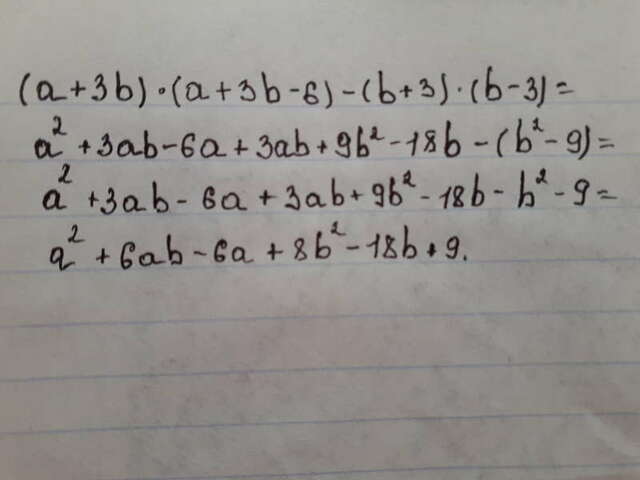 (a+3b)·(a+3b-6)-(b+3)·(b-3)=
a²+3ab-6a+3ab+9b²-18b-(b²-9)=
a²+3ab-6a+3ab+9b²-18b-b²-9=
a²+6ab-6a+8b²-18b+9.